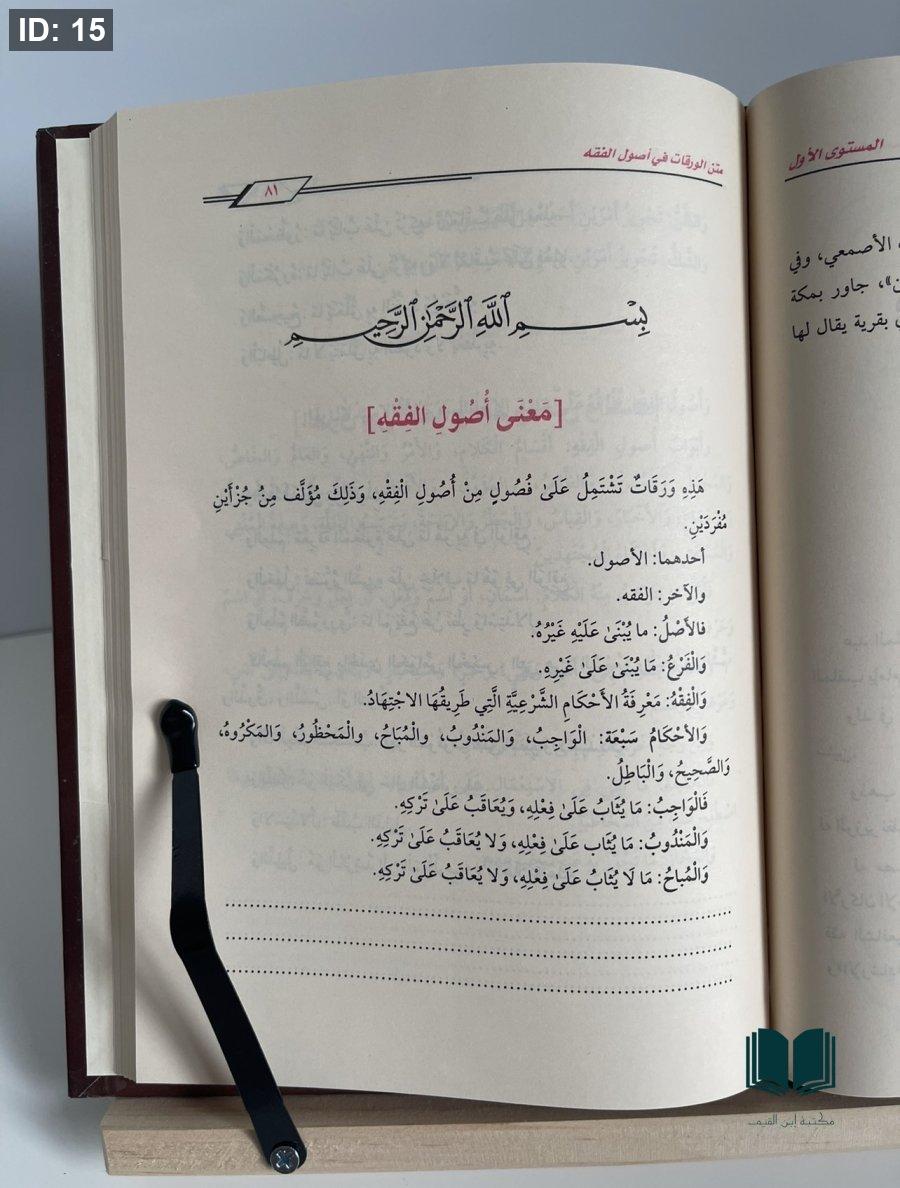 ID: 15
المستوى الأول
الأصمعي، وفي
جاور بمكة
بقرية يقال لها
متن الورقات في أصول الفقه
٨١
بِسْمِ ٱللَّهِ ٱلرَّحْمَٰنِ ٱلرَّحِيمِ
[مَعْنَى أُصُولِ الفِقْهِ]
هَذِهِ وَرَقَاتٌ تَشْتَمِلُ عَلَىٰ فُصُولٍ مِنْ أُصُولِ الْفِقْهِ، وَذَلِكَ مُؤَلَّف مِنُ جُزْأَيْنِ
مُفْرَدَيْنِ.
أحدهما: الأصول.
والآخر: الفقه.
فالأَصْلُ: ما يُبْنَىٰ عَلَيْهِ غَيْرُهُ.
وَالْفَرْعُ: مَا يُبْنَىٰ عَلَىٰ غَيْرِهِ.
وَالْفِقْهُ: مَعْرِفَةُ الأَحْكَامِ الشَّرْعِيَّةِ الَّتِي طَرِيقُهَا الاجْتِهَادُ.
وَالأحْكَامُ سَبْعَة: الْوَاجِبُ، وَالمَنْدُوبُ، والْمُبَاحُ، والْمَحْظُورُ، وَالمَكْرُوهُ،
وَالصَّحِيحُ، وَالْبَاطِلُ.
فَالْوَاجِبُ: مَا يُثَابُ عَلَىٰ فِعْلِهِ، وَيُعَاقَبُ عَلَىٰ تَرْكِهِ.
وَالْمَنْدُوبُ: مَا يُثَاب عَلَىٰ فِعْلِهِ، وَلا يُعَاقَبُ عَلَىٰ تَرْكِهِ.
وَالْمُباحُ: مَا لَا يُثَابُ عَلَىٰ فِعْلِهِ، وَلا يُعَاقَبُ عَلَىٰ تَرْكِهِ.
مكتبة ابن القيم